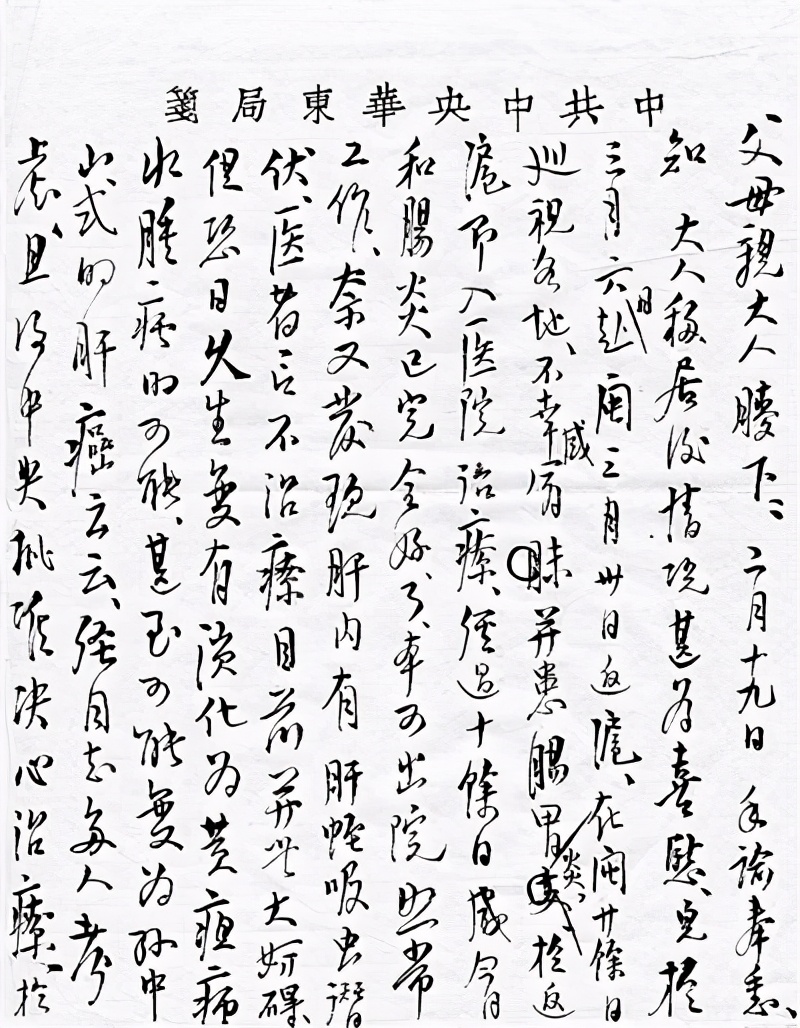 中共中央華東局箋
父母親大人膝下：二月十九日手諭奉悉、
知大人移居後情况甚为喜慰、兒於
三月六日赴閩三月卅日返滬、在閩廿餘日
巡視各地、不幸感并患腸胃炎、於返
滬即入医院診療、經過十餘日感
和腸炎已完全好了、本可出院照常
工作、奈又發現肝内有肝蛭吸虫潛
伏、医者言不治療目前并無大妨礙、
但恐日久生變有演化为黄疸病
水腫病的可能、甚至可能變为孫中
山式的肝癌云云、經多人考
慮、且得中央批准决心治療、於